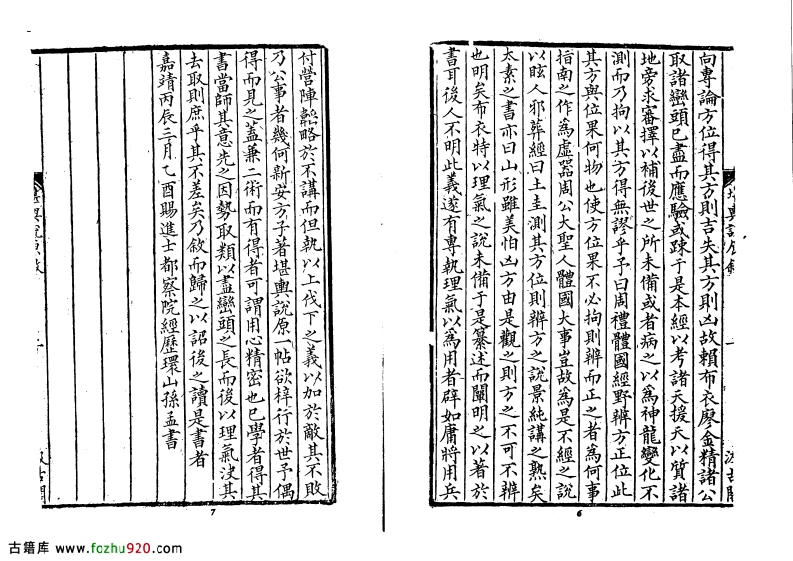 向專論方位得其方則吉失其方則凶故賴布衣廖金精諸公
取諸巒頭已盡而應驗或疎于是本經以考諸天援天以質諸
地旁求審擇以補後世之所未備或者病之以為神龍變化不
測而乃拘以其方得無謬乎予曰周禮體國經野辨方正位此
其方與位果何物也使方位果不必拘則辨而正之者為何事
指南之作為虛器周公大聖人體國大事豈故為是不經之說
以眩人邪葬經曰土圭測其方位則辨方之說景純講之熟矣
太素之書亦曰山形雖美怕凶方由是觀之則方之不可不辨
也明矣布衣特以理氣之說未備于是纂述而闡明之以著於
書耳後人不明此義遂有專執理氣以為用者辟如庸將用兵
堪輿說原敘
一
汲古閣
6
付營陣韜略於不講而但執以上伐下之義以加於敵其不敗
乃公事者幾何新安方子著堪輿說原一帖欲梓行於世予偶
得而見之蓋兼二術而有得者可謂用心精密也已學者得其
書當師其意先之因勢取類以盡巒頭之長而後以理氣決其
去取則庶乎其不差矣乃敘而歸之以詔後之讀是書者
嘉靖丙辰三月乙酉賜進士都察院經歷環山孫孟書
堪輿說原敘
二
汲古閣
7
古籍库 www.fozhu920.com